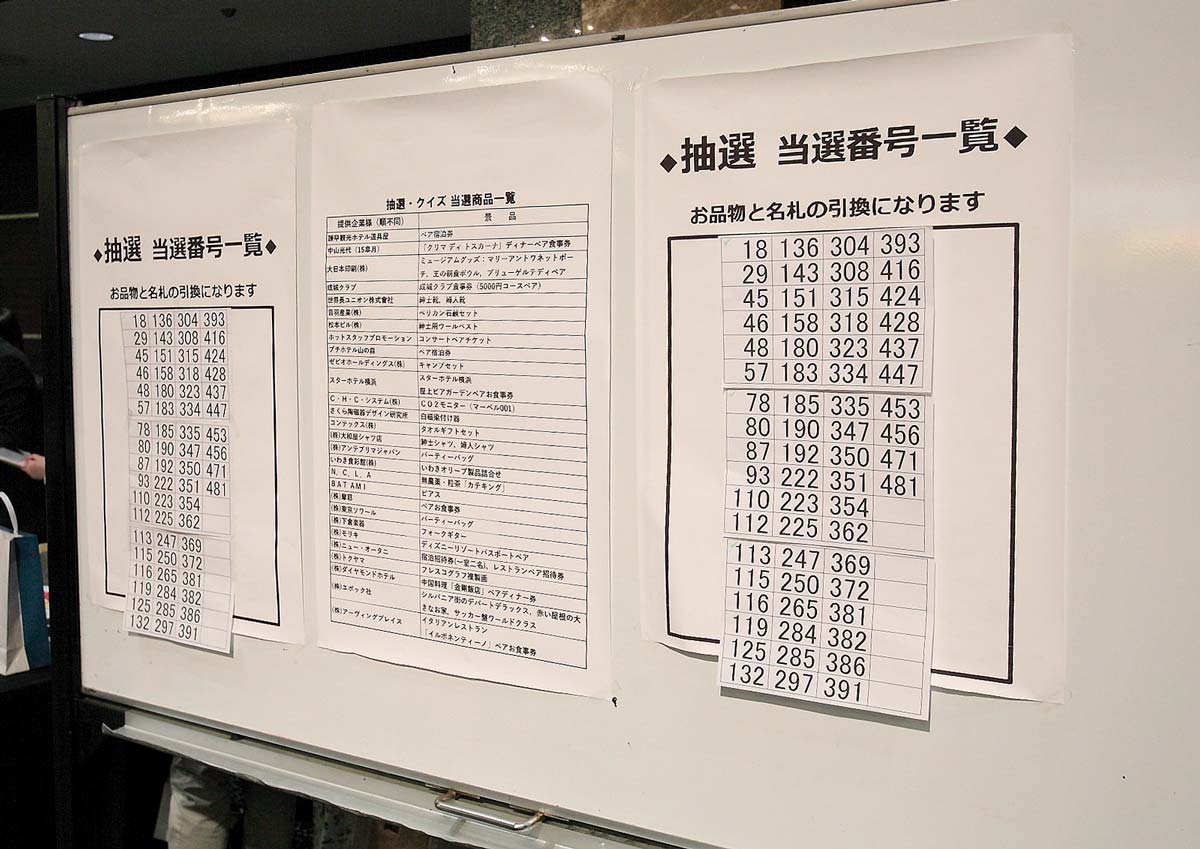 ◆抽選 当選番号一覧◆
お品物と名札の引換になります
18 136 304 393
29 143 308 416
45 151 315 424
46 158 318 428
48 180 323 437
57 183 334 447
78 185 335 453
80 190 347 456
87 192 350 471
93 222 351 481
110 223 354
112 225 362
113 247 369
115 250 372
116 265 381
119 284 382
125 285 386
132 297 391
抽選・クイズ 当選商品一覧
提供企業様（順不同） 景品
諫早観光ホテル道具屋 ペア宿泊券
中山光代（15皐月） 「クリマ ディトスカーナ」ディナーペア食事券
大日本印刷(株) ミュージアムグッズ：マリーアントワネットポー
チ、王の朝食ボウル、ブリューゲルテディベア
成城クラブ 成城クラブ食事券（5000円コースペア）
世界長ユニオン株式会社 紳士靴、婦人靴
ペリカン石鹸セット
松本ビル(株) 紳士用ウールベスト
ホットスタッフプロモーション コンサートペアチケット
プチホテル山の森 ペア宿泊券
ゼビオホールディングス(株) キャンプセット
スターホテル横浜 スターホテル横浜
屋上ビアガーデンペアお食事券
C・H・C・システム(株) CO2モニター（マーベル001）
さくら陶磁器デザイン研究所 白磁染付け器
コンテックス(株) タオルギフトセット
(株)大和屋シャツ店 紳士シャツ、婦人シャツ
(株)アンテプリマジャパン パーティーバッグ
いわき食彩館(株) いわきオリーブ製品詰合せ
N.C.L.A 無農薬・粒茶「カテキング」
BATAMI ピアス
(株)摩耶 ペアお食事券
(株)東京ソワール パーティーバッグ
(株)下倉楽器 フォークギター
(株)モリキ ディズニーリゾートパスポートペア
(株)ニュー・オータニ 宿泊招待券(一室二名)、レストランペア招待券
(株)トクヤマ フレスコグラフ複製画
(株)ダイヤモンドホテル 中国料理「金剛飯店」ペアディナー券
(株)エポック社 シルバニア街のデパートデラックス、赤い屋根の大
きなお家、サッカー盤ワールドクラス
(株)アーヴィングプレイス イタリアンレストラン
「イルボネンティーノ」ペアお食事券
◆抽選 当選番号一覧◆
お品物と名札の引換になります
18 136 304 393
29 143 308 416
45 151 315 424
46 158 318 428
48 180 323 437
57 183 334 447
78 185 335 453
80 190 347 456
87 192 350 471
93 222 351 481
110 223 354
112 225 362
113 247 369
115 250 372
116 265 381
119 284 382
125 285 386
132 297 391